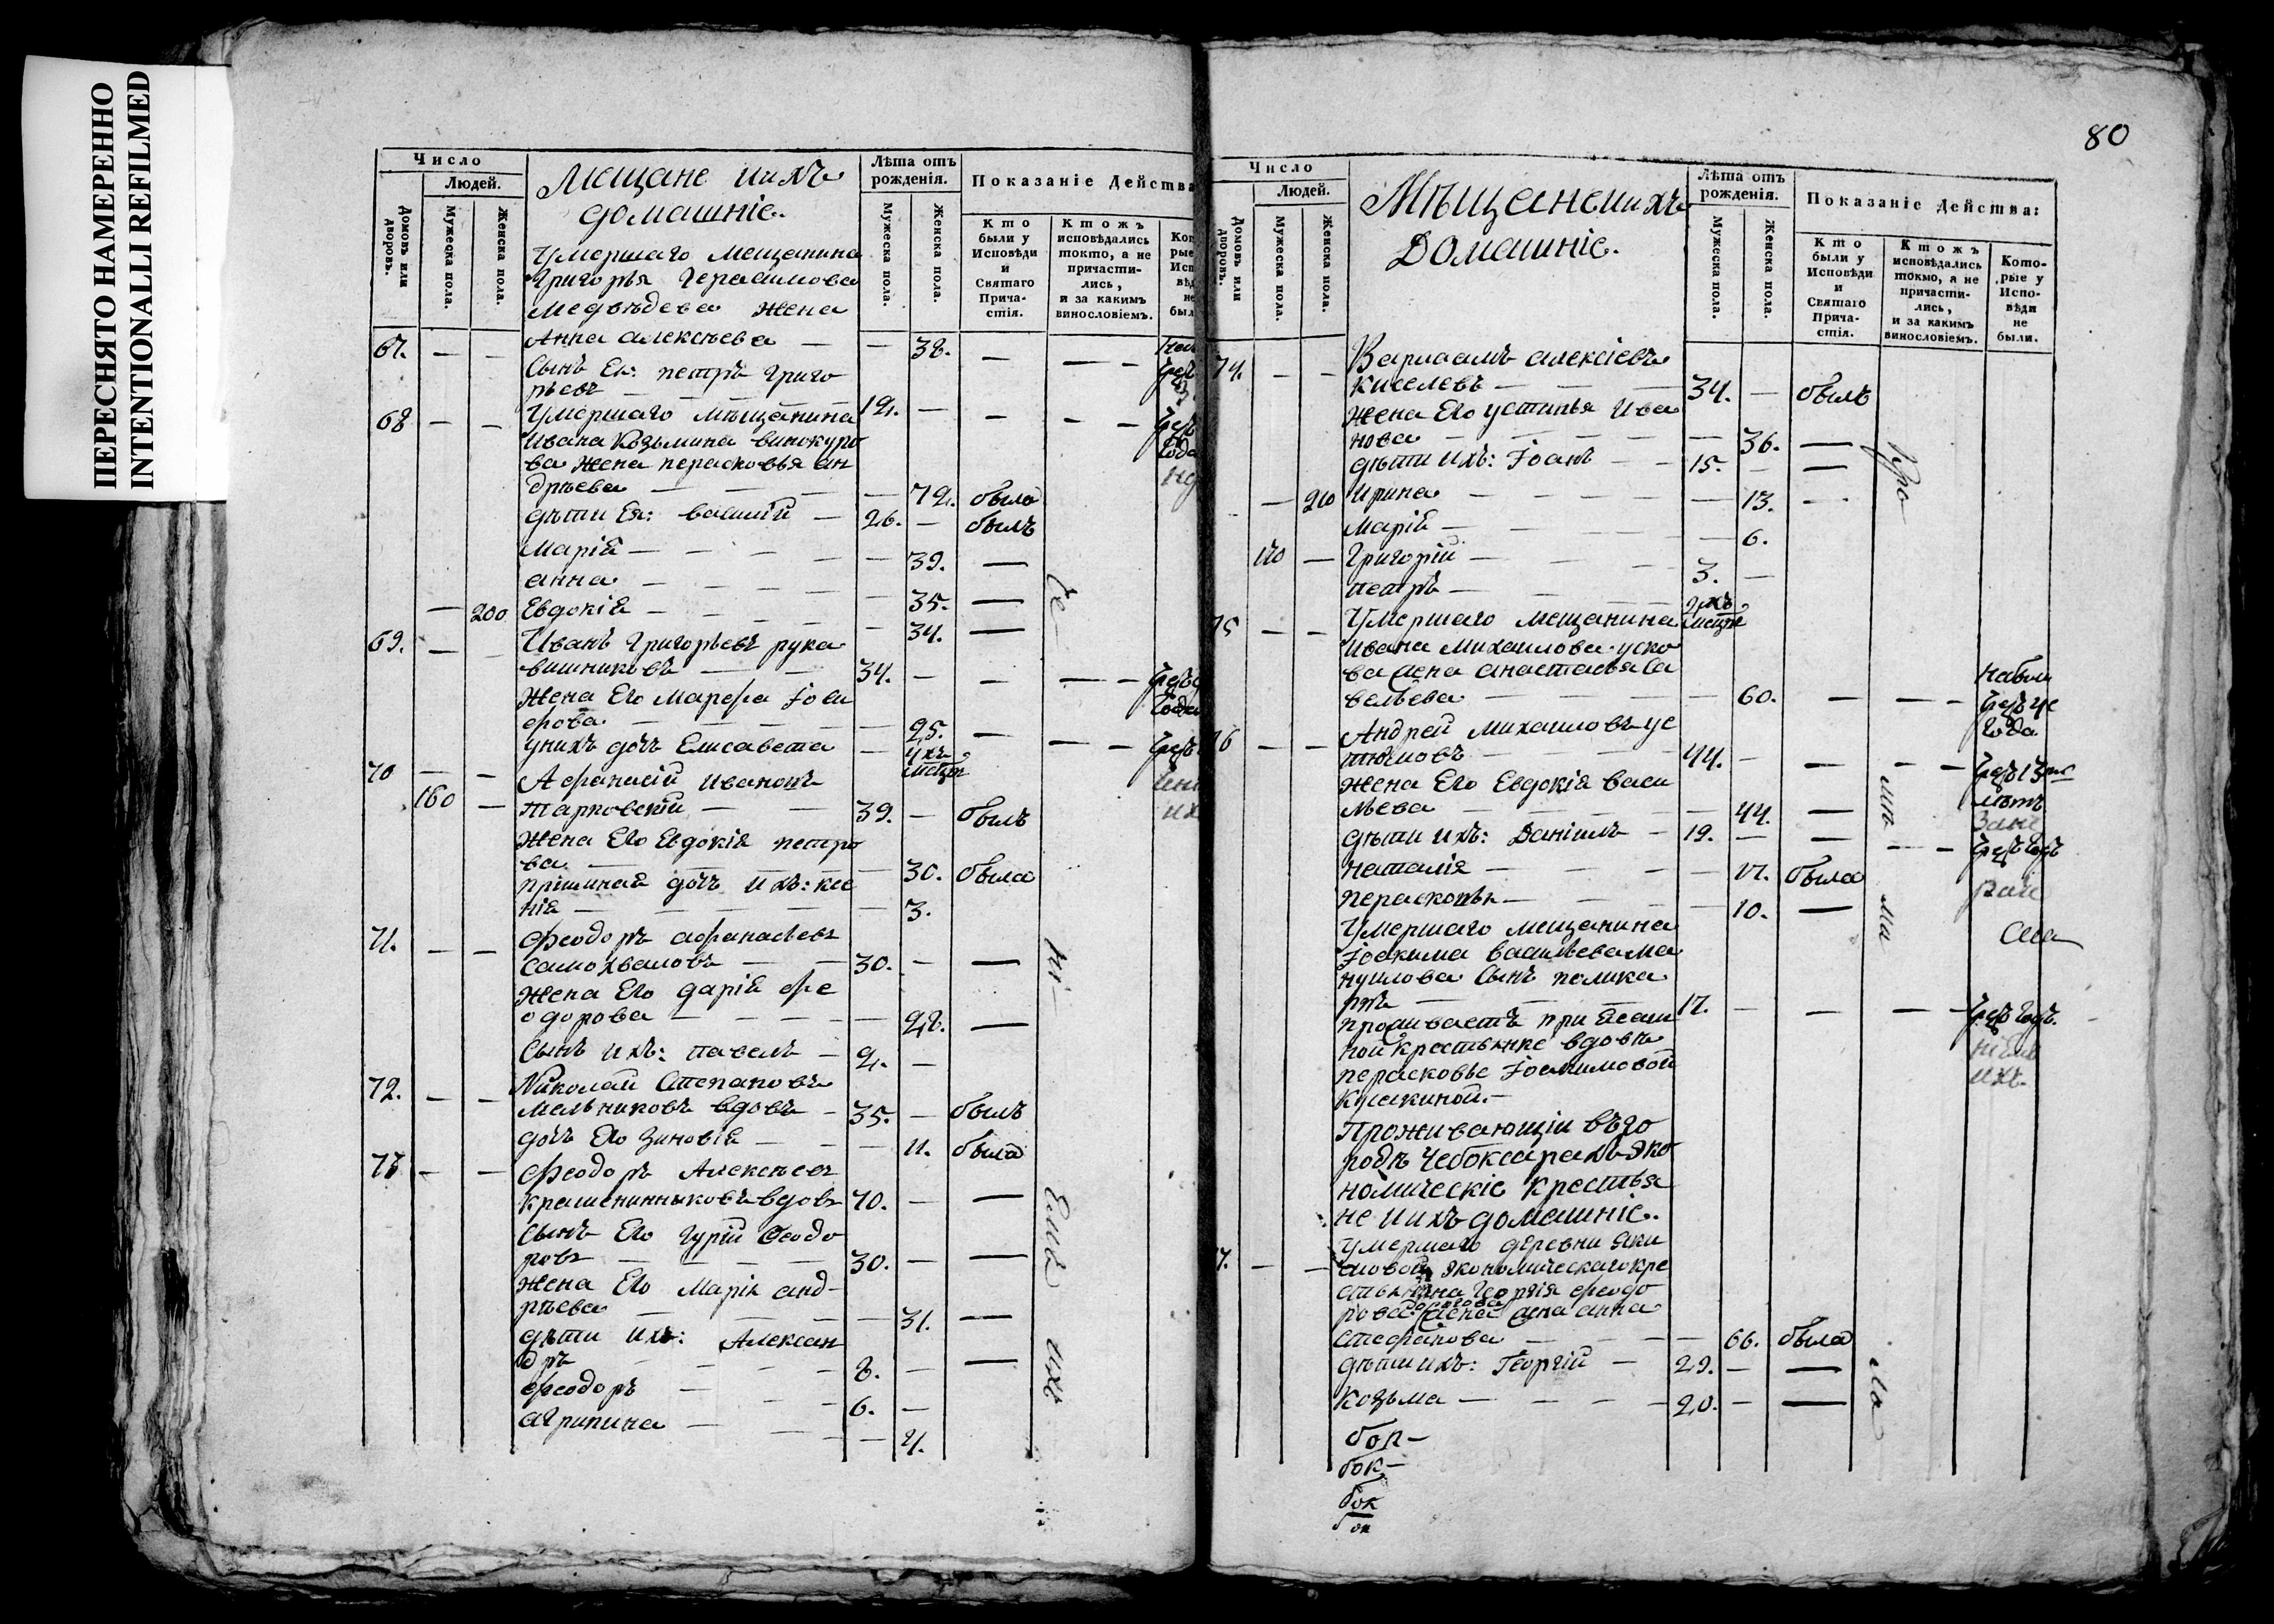 ПЕРЕСНЯТО НАМЕРЕННО
INTENTIONALLI REFILMED
Число
Людей.
Домовъ или дворовъ.
Мужеска пола.
Женска пола.
Мещане и ихъ
домашнїе.
Лѣта отъ рожденїя.
Мужеска пола.
Женска пола.
Показанїе Действа
Кто были у Исповѣди и Святаго Прича-стїя.
Ктожъ исповѣдались токмо, а не причасти-лись, и за какимъ винословїемъ.
Умершаго Мещанина
Григорья Герасимова
Медвѣдева жена
67. — — Анна алексѣева — — 38. — — —
Сынъ Ея: петръ Григо
рьевъ — 12. —
68 — — Умершаго Мѣщанина
Ивана Козьмина винокуро
ва жена перасковья ан
дрѣева — — 72. была
дѣти Ея: василій — 26. — былъ
Марія — — 39. —
анна — — 35. —
— 200 Евдокія — — 34. —
69. — — Иванъ Григорьевъ рука
вишниковъ — 34. — — — —
Жена Его Марфа Іоси
фова — — 25. — — —
у нихъ дочь Елисавета —
70 — — Афанасій Ивановъ
160 — Тарновскій — 39. — былъ
Жена Его Евдокія петро
ва — — 30. была
дочь ихъ: ксе
нія — — 3.
71. — — Феодоръ афанасьевъ
Самохваловъ — 30. — —
Жена Его дарія фе
одорова — — 28. —
Сынъ ихъ: павелъ — 2. —
72. — — Николай Степановъ
Мельниковъ вдовъ — 35. — былъ
дочь Его Зиновія — — 11. была
73 — — Феодоръ Алексѣевъ
Крашенинниковъ вдовъ 70. — —
Сынъ Его Гурій Феодо
ровъ — 30. — —
Жена Его Марія анд-
рѣева — — 31. —
дѣти ихъ: Алексан
дръ — 8. — —
Феодоръ — 6. —
агрипина — — 4.
80
Число
Людей.
Домовъ или дворовъ.
Мужеска пола.
Женска пола.
Мѣщане и ихъ
Домашнїе.
Лѣта отъ рожденїя.
Мужеска пола.
Женска пола.
Показанїе Действа:
Кто были у Исповѣди и Святаго Прича-стїя.
Ктожъ исповѣдались токмо, а не причасти-лись, и за какимъ винословїемъ.
Кото-рые у Испо-вѣди не были.
74. — — Варлаамъ алексіевъ
киселевъ — 34. — былъ
Жена Его устинья Ива
нова — — 36. —
дѣти ихъ: Іоанъ — 15. — —
— 210 Ирина — — 13. —
Марія — — 6.
170 — Григорій — 3. —
петръ —
75 — — Умершаго мещанина
Ивана Михаилова уско
ва жена анастасья са
вельева — — 60. — — —
76 — — Андрей Михаиловъ ус
тюговъ — 44. — — — —
Жена Его Евдокія васи
льева — — 44. —
дѣти ихъ: Даніилъ — 19. — — — —
Наталія — — 17. была
перасковья — — 10. —
Умершаго мещанина
Іоакима васильева ма
нуилова Сынъ полика
рпъ — 17. — — — —
проживаетъ при
ной крестьянке вдове
перасковье Іоакимовой
Кулакиной. —
Проживающіи въ го
родѣ Чебоксарахъ эко
номическіе крестья
не и ихъ домашніе.
77. — — Умершаго деревни яки
мовой экономическаго кре
стьянина Георгія феодо
рова жена анна
Стефанова — — 66. была
дѣти ихъ: Георгій — 29. — —
Козьма — 20. — —